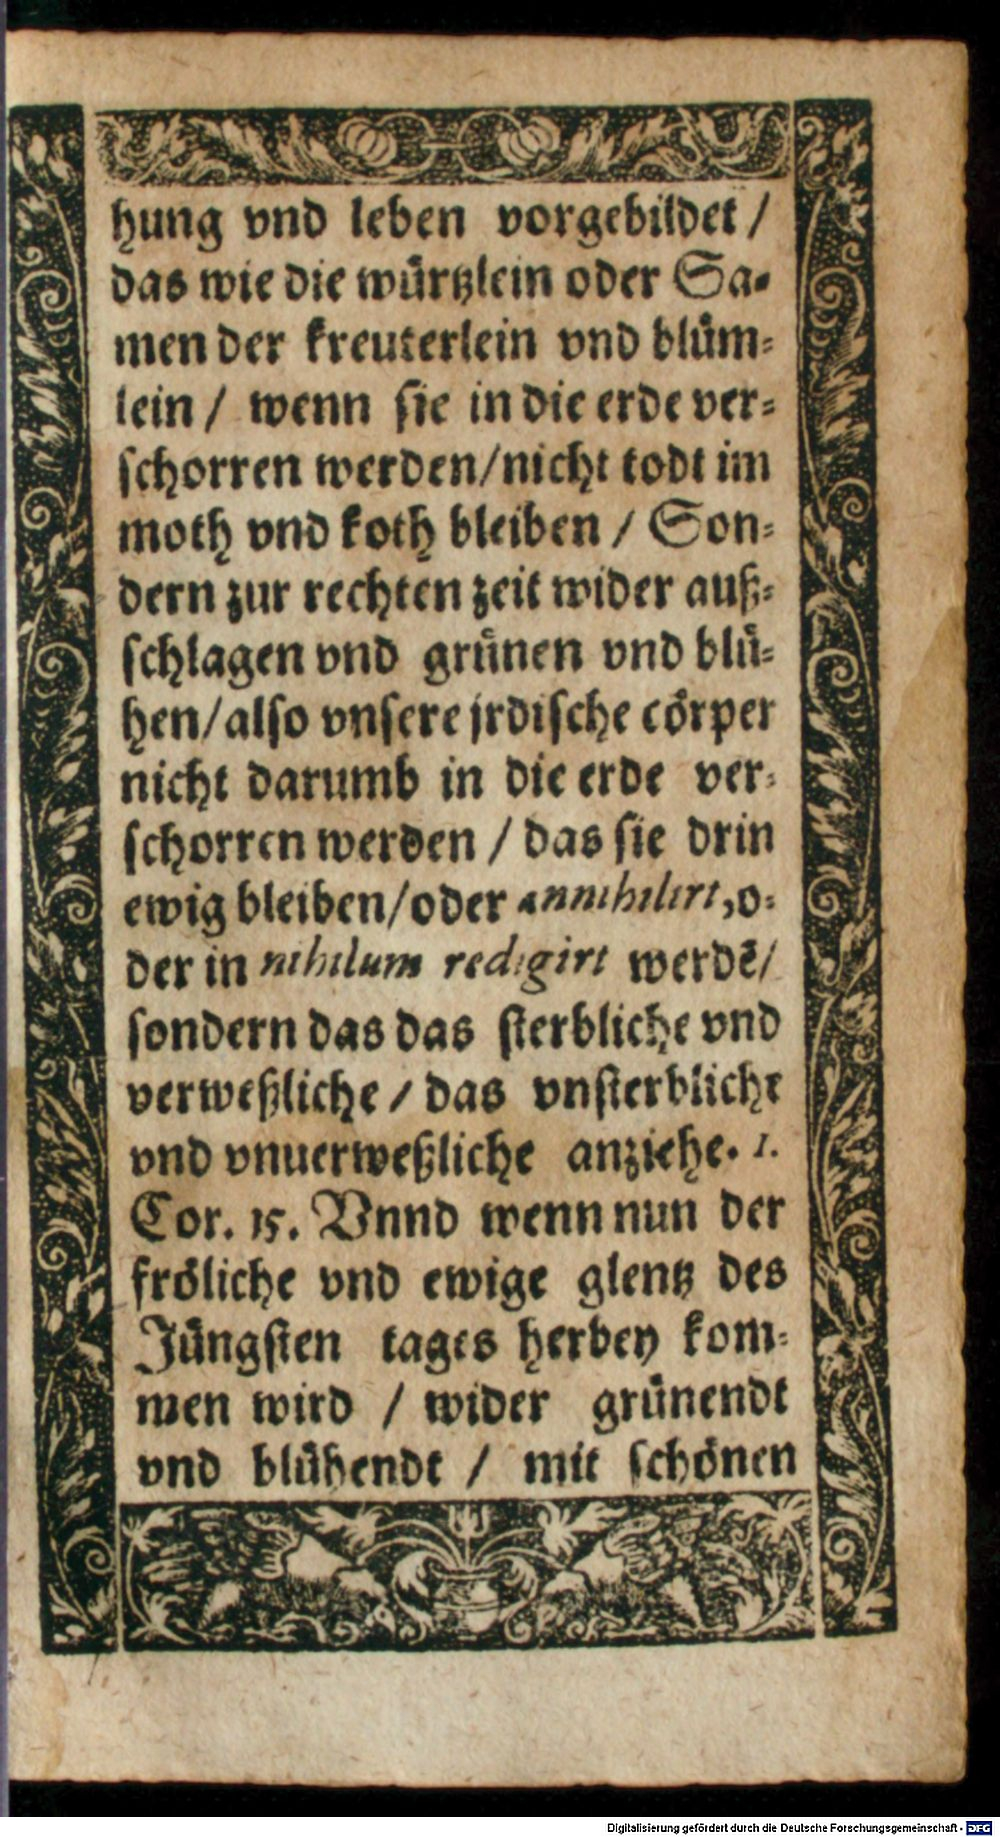 hung vnd leben vorgebildet /
das wie die würtzlein oder Sa-
men der kreuterlein vnd blüm-
lein / wenn sie in die erde ver-
schorren werden/nicht todt im
moth vnd koth bleiben / Son-
dern zur rechten zeit wider auß-
schlagen vnd grünen vnd blü-
hen/also vnsere jrdische cörper
nicht darumb in die erde ver-
schorren werden / das sie drin
ewig bleiben/oder annihilirt,o-
der in nihilum redigirt werdē/
sondern das das sterbliche vnd
verweßliche / das vnsterbliche
vnd vnuerweßliche anziehe. 1.
Cor. 15. Vnnd wenn nun der
fröliche vnd ewige glentz des
Jüngsten tages herbey kom-
men wird / wider grünendt
vnd blühendt / mit schönen
Digitalisierung gefördert durch die Deutsche Forschungsgemeinschaft - DFG